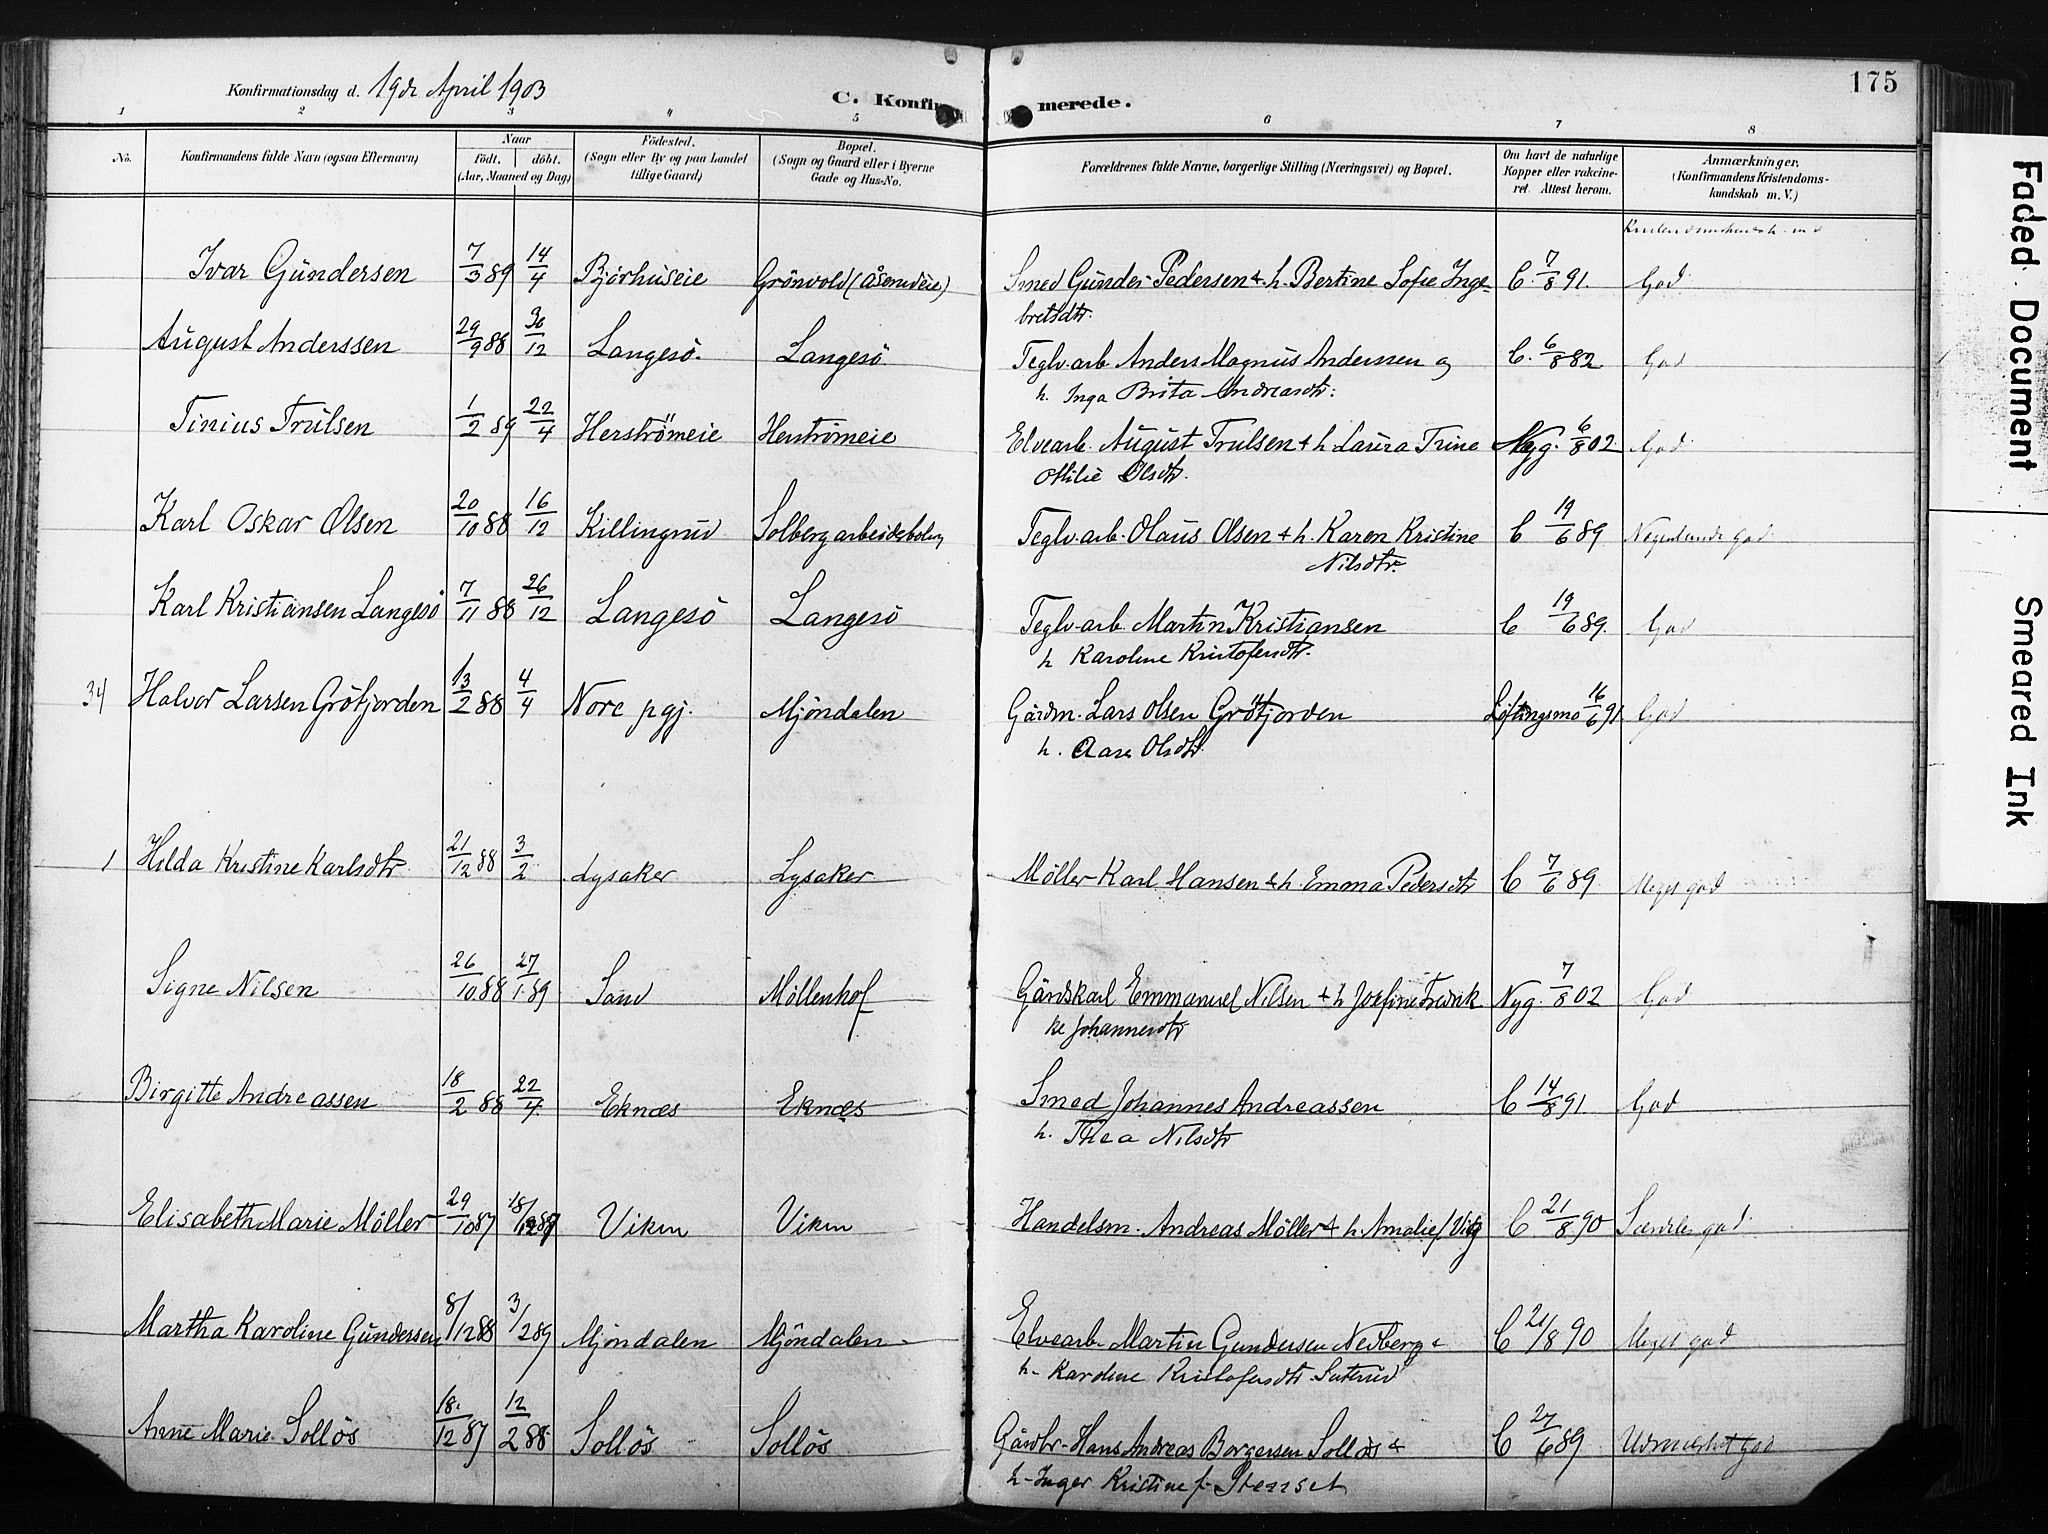 175
Konfirmationsdag d. 19de April 1903
C. Konfirmerede.
1 2 3 " 5 6 7 8
No.
Konfirmandens fulde Navn (ogsaa Efternavn)
Naar
födt. döbt.
(Aar, Maaned og Dag)
Födested.
(Sogn eller By og paa Landet
tillige Gaard)
Bopæl.
(Sogn og Gaard eller i Byerne
Gade og Hus-No.
Forældrenes fulde Navne, borgerlige Stilling (Næringsvei) og Bopæl.
Om havt de naturlige
Kopper eller vakcine-
ret. Attest herom.
Anmærkninger.
(Konfirmandens Kristendoms-
kundskab m. V.)
Ivar Gundersen 7/3 89 14/4 Bjórhuseie Grönvold (Åserudeie) Smed Gunder Pedersen & h. Bertine Sofie Inge- C. 7/8 91. God
bretsdtr.
August Anderssen 29/9 88 30/12 Langesö. Langesö Teglv.arb Anders Magnus Anderssen og C. 6/8 82 God
h. Inga Brita Andreasdtr.
Tinius Trulsen 1/2 89 22/4 Herströmeie Herströmeie Elvearb. August Trulsen & h Laura Trine Nyg. 6/8 02. God
Otilie Olsdtr.
Karl Oskar Olsen 20/10 88 16/12 Killingrud Solberg arbeiderbolig Teglv.arb. Olaus Olsen & h. Karen Kristine C 19/6 89 Nogenlunde god
Nilsdtr.
Karl Kristiansen Langesö 7/11 88 26/12 Langesö Langesö Teglv.arb. Martin Kristiansen C 19/6 89. God
h Karoline Kristofersdtr.
34 Halvor Larsen Grötjorden 13/2 88 4/4 Nore pgj. Mjöndalen Gårdm. Lars Olsen Grötjorden Löftingsmo 16/6 91 God
h. Aase Olsdtr.
1 Hilda Kristine Karlsdtr 21/12 88 3/2 Lysaker Lysaker Møller Karl Hansen & h. Emma Pedersdtr C 7/6 89 Meget god
Signe Nilsen 26/10 88 27/1 89 Sand Möllenhof Gårdskarl Emmanuel Nilsen & h Josefine Fredrik Nyg. 7/8 02 God
ke Johannesdtr
Birgitte Andreassen 18/2 88 22/4 Eknæs Eknæs Smed Johannes Andreassen C 14/8 91 God
h. Thea Nilsdtr
Elisabeth Marie Möller 29/10 87 18/12 87 Viken Viken Handelsm. Andreas Møller & h. Amalie f. Vig C. 21/8 90 Særdeles god
Martha Karoline Gundersen 8/12 88 3/2 89 Mjöndalen Mjöndalen Elvearb. Martin Gundersen Nedberg & C 21/8 90 Meget god
h. Karoline Kristofersdtr
Anne Marie Sollös 18/12 87 12/2 88 Sollös Sollös Gårdbr. Hans Andreas Borgersen Sollös & C 27/6 89 Udmerket god
h. Inger Kristine f. Stenset
Faded Document
Smeared Ink